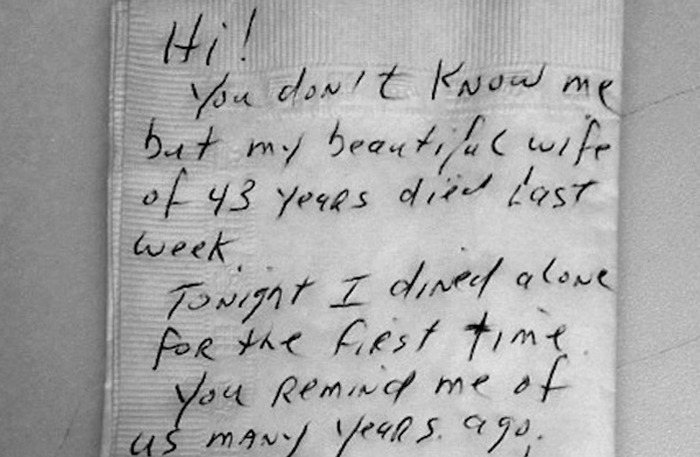 Hi!
You don't know me
but my beautiful wife
of 43 years died last
week.
Tonight I dined alone
for the first time.
You remind me of
us many years ago.